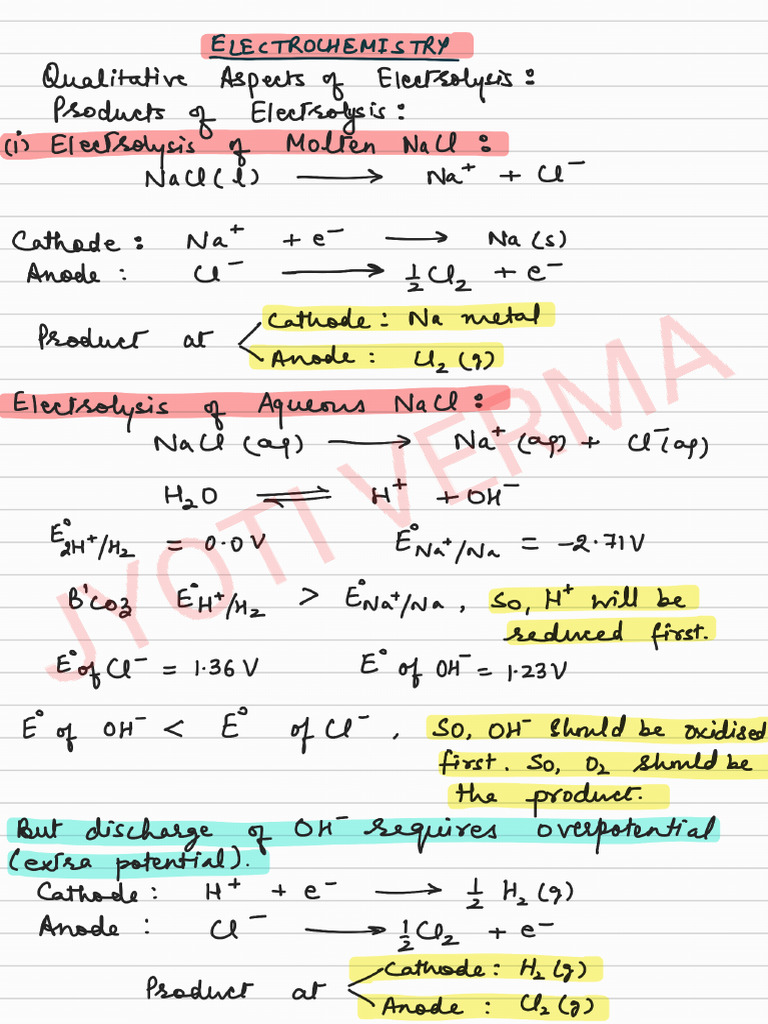 ELECTROCHEMISTRY
Qualitative Aspects of Electrolysis:
Products of Electrolysis:
(i) Electrolysis of Molten NaCl:
NaCl(l) ⟶ Na⁺ + Cl⁻
Cathode: Na⁺ + e⁻ ⟶ Na(s)
Anode: Cl⁻ ⟶ ½Cl₂ + e⁻
Product at
Cathode: Na metal
Anode: Cl₂(g)
Electrolysis of Aqueous NaCl:
NaCl(aq) ⟶ Na⁺(aq) + Cl⁻(aq)
H₂O ⇌ H⁺ + OH⁻
E°2H⁺/H₂ = 0.0V E°Na⁺/Na = -2.71V
B'coz E°H⁺/H₂ > E°Na⁺/Na, So, H⁺ will be
reduced first.
E° of Cl⁻ = 1.36 V E° of OH⁻ = 1.23V
E° of OH⁻ < E° of Cl⁻, So, OH⁻ should be oxidised
first. So, O₂ should be
the product.
But discharge of OH⁻ requires overpotential
(extra potential).
Cathode: H⁺ + e⁻ ⟶ ½ H₂(g)
Anode: Cl⁻ ⟶ ½Cl₂ + e⁻
Product at
Cathode: H₂(g)
Anode: Cl₂(g)
JYOTI VERMA